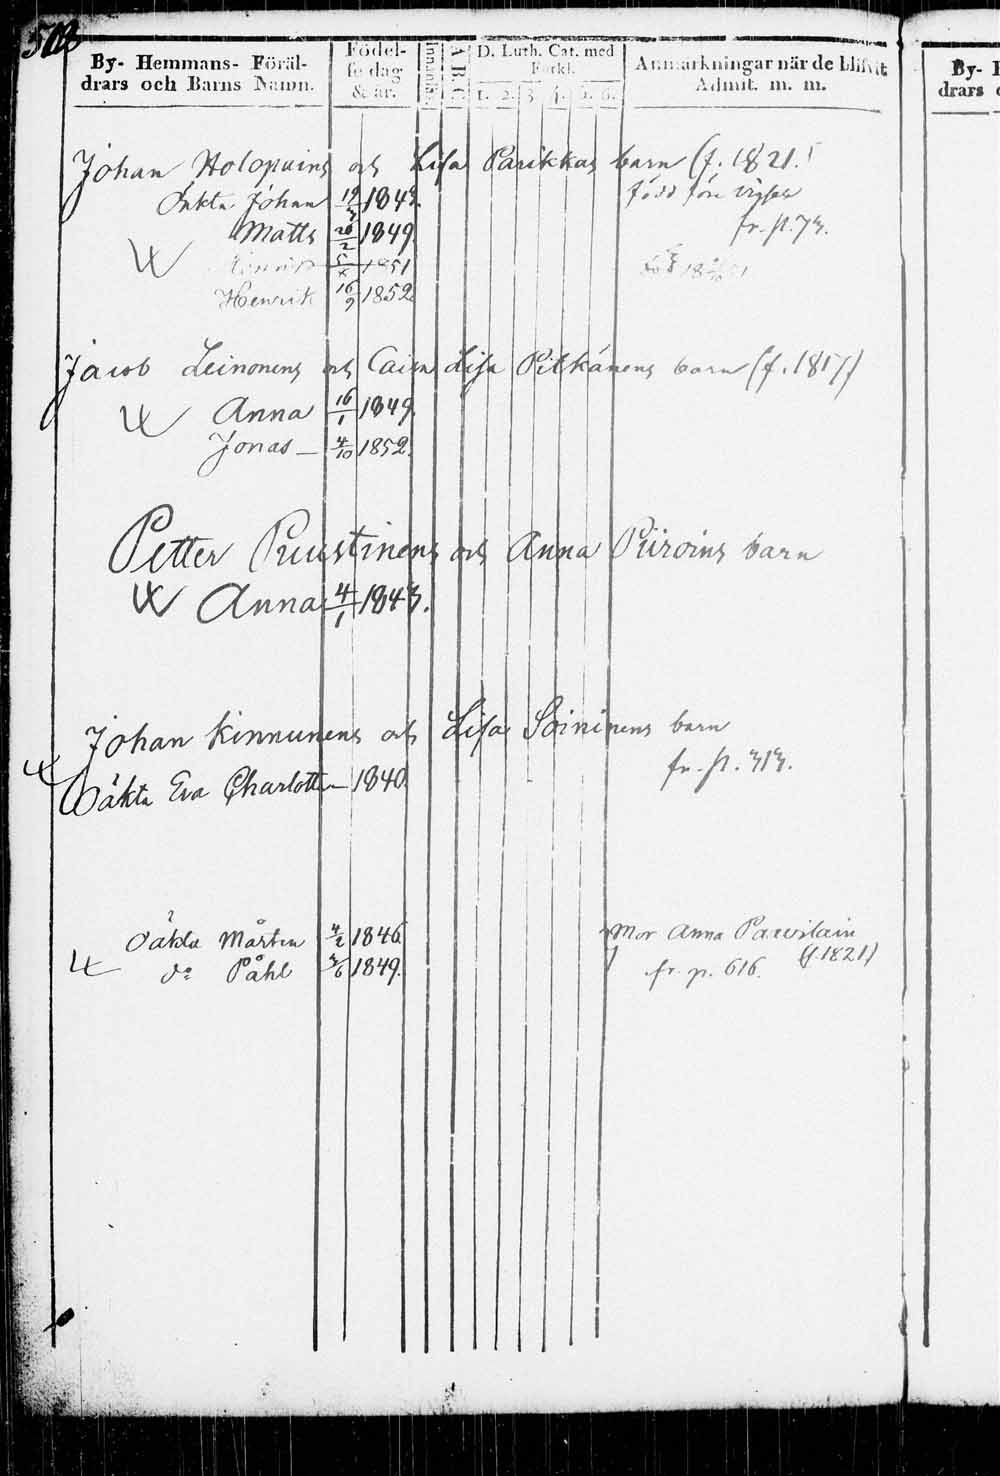 By- Hemmans- Föräl-
drars och Barns Namn.
Födel-
se dag
& år.
A B C
D. Luth. Cat. med
Förkl.
1. 2. 3. 4. 5. 6.
Anmärkningar när de blifvit
Admit. m. m.
By-
drars
Johan Holopains och Lisa Parikkas barn (f. 1821.)
Oäkta Johan 19/3 1843.
född före vigseln
Matts 26/2 1849.
fr. p. 73.
5/x 1851
Henrik 16/9 1852.
Jacob Leinonens och Caisa Lisa Pitkänens barn (f. 1817)
Anna 16/1 1849.
Jonas — 4/10 1852.
Petter Puustinens och Anna Piiroins barn
Anna 4/1 1843.
Johan Kinnunens och Lisa Soininens barn
fr. p. 313.
Oäkta Eva Charlotta — 1840.
Oäkta Mårten 4/2 1846
Mor Anna Parvilain
(f. 1821)
do Påhl 3/6 1849.
fr. p. 616.